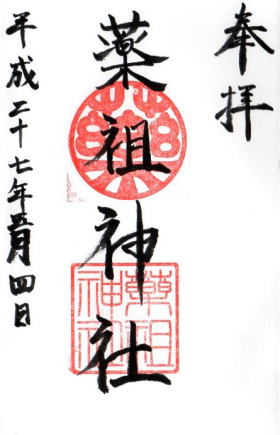 奉拝
薬祖神社
薬祖神社
平成二十七年五月四日